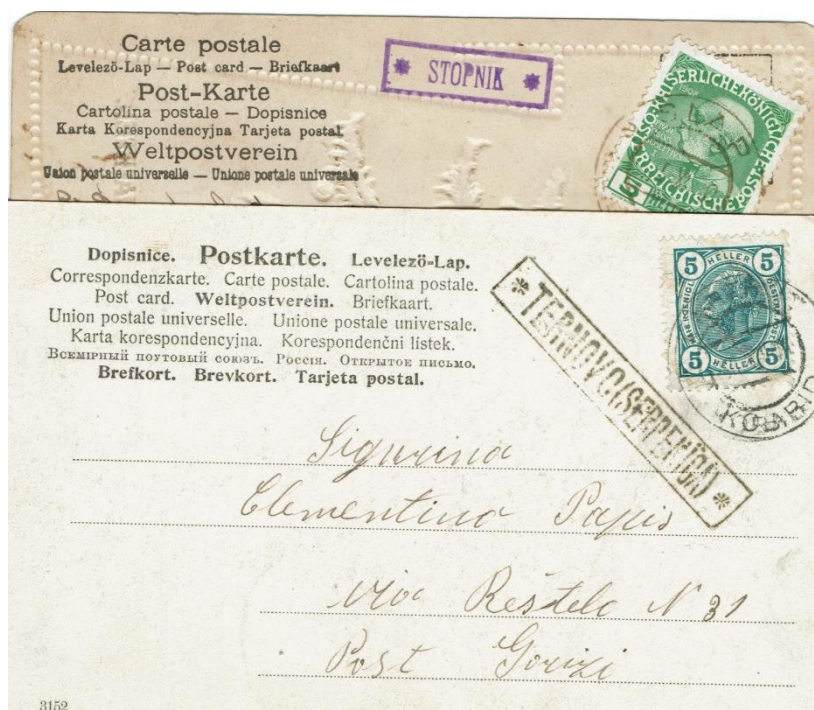 Carte postale
Levelező-Lap — Post card — Briefkaart
Post-Karte
Cartolina postale — Dopisnice
Karta Korespondencyjna Tarjeta postal
Weltpostverein
Union postale universelle — Unione postale universale
* STOPNIK *
KAISERLICHE KÖNIGLICHE
ÖSTERREICHISCHE POST
1908
5
Dopisnice. Postkarte. Levelező-Lap.
Correspondenzkarte. Carte postale. Cartolina postale.
Post card. Weltpostverein. Briefkaart.
Union postale universelle. Unione postale universale.
Karta korespondencyjna. Korespondenční lístek.
Всемірный почтовый союзъ. Россія. Открытое письмо.
Brefkort. Brevkort. Tarjeta postal.
* TERNOVO(SERPENICA) *
5 HELLER 5
5 HELLER 5
KOBARID
Sigurina
Clementina Papis
Via Reštelo N 31
Post Gorizi
3152